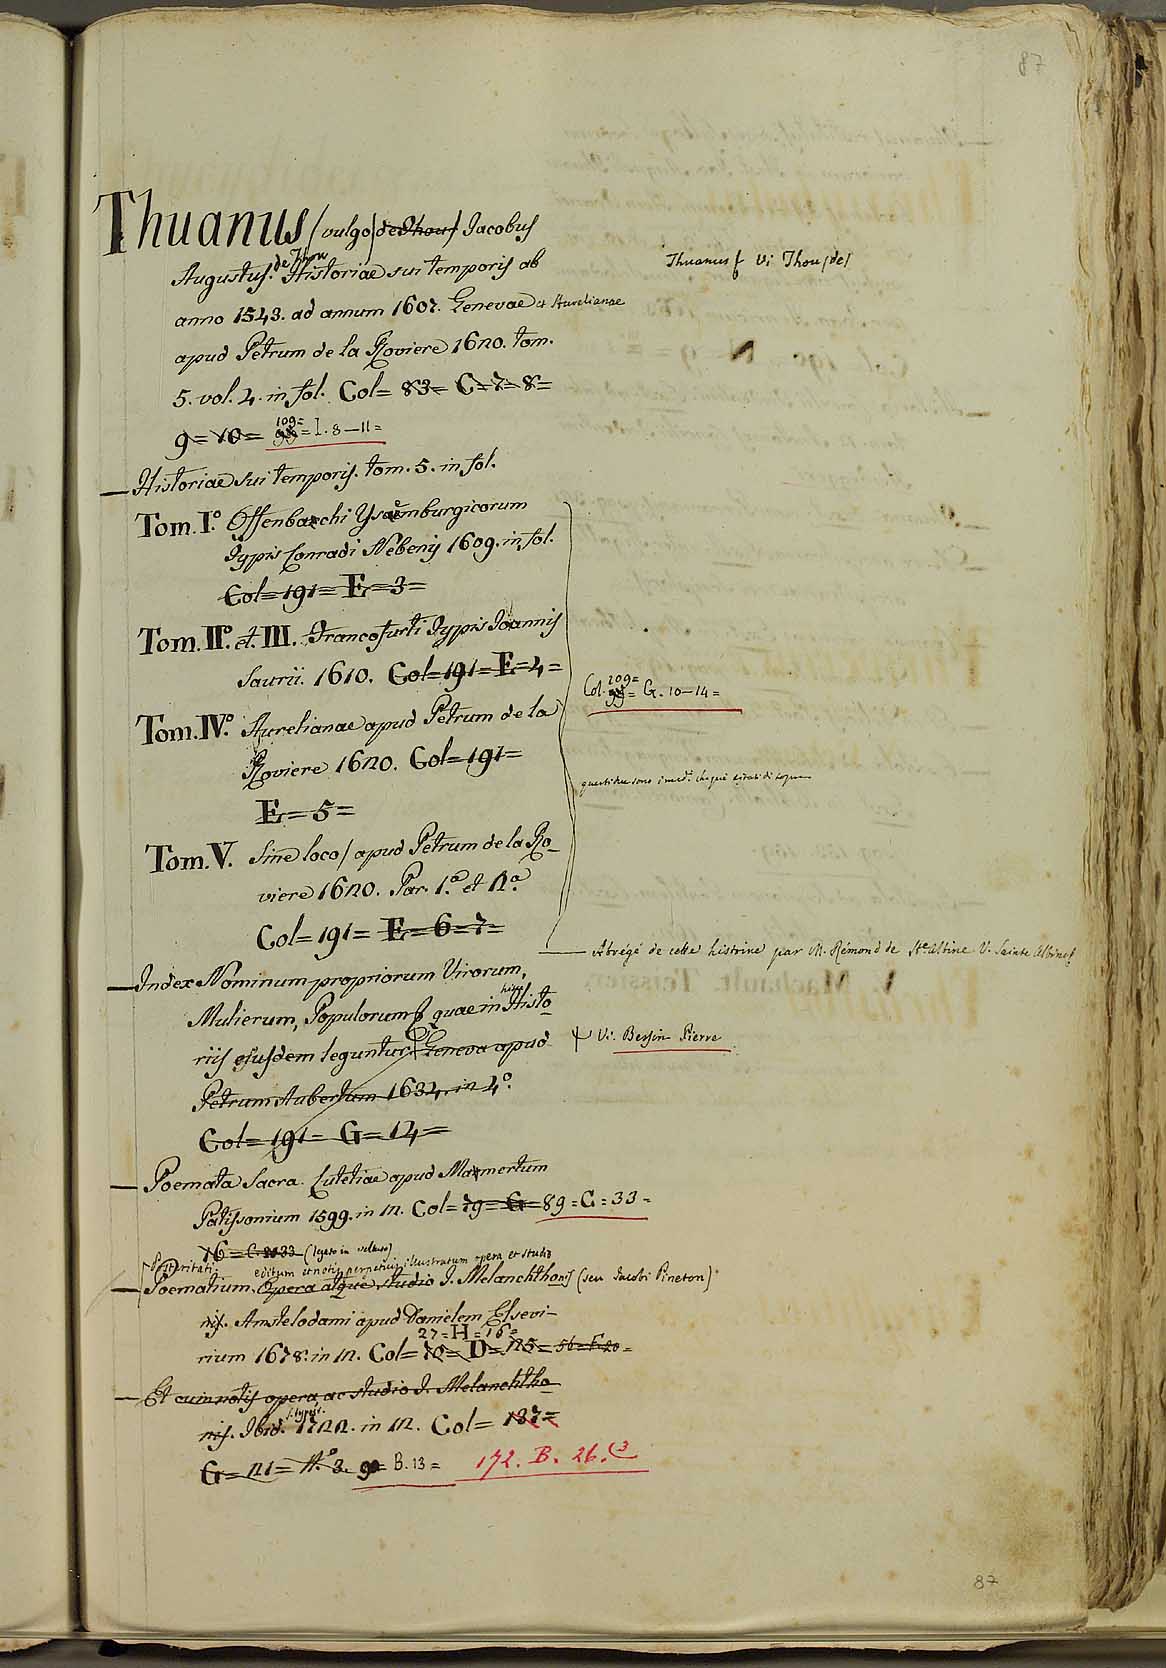 87
Thuanus (vulgo) de Thou Jacobus
Thuanus Vi Thou (de)
Augustus. de Thou Historiae sui temporis ab
anno 1543. ad annum 1607. Genevae et Aurelianae
apud Petrum de la Roviere 1620. tom.
5. vol. 4. in fol. Col= 83= C=7=8=
9=10= 109= 99= I. 8-11=
Historiae sui temporis. tom. 5. in fol.
Tom. I.º Offenbachi Ysemburgicorum
Typis Conradi Nebenij 1609. in fol.
Col=191= E=3=
Tom. IIº. et. III. Francofurti Typis Joannis
Saurii. 1610. Col=191=E=4=
Col. 109= 99= G. 10-14=
Tom. IV.º Aurelianae apud Petrum de la
Roviere 1620. Col=191=
E=5=
Tom. V. Sine loco / apud Petrum de la Ro_
viere 1620. Par. 1.ª et 2.ª
Col=191= E=6=7=
Abrégé de cette histoire par M. Rémond de Ste Albine V. Sainte Albine
Index Nominum propriorum Virorum,
Mulierum, Populorum quae in Histo_
riis ejusdem leguntur. Geneva apud
Vi. Bessin Pierre
Petrum Aubertum 1634. in 4º.
Col=191= G=14=
Poemata Sacra. Lutetiae apud Mamertum
Patissonium 1599. in 12. Col=19=G=89=C=33=
16=C.33 (legato in velluto)
Posteritati. editum et notis perpetuis illustratum opera et studio
Poematium. Opera atque studio J. Melanchthonis (seu Jacobi Pineton)
nis. Amstelodami apud Danielem Elsevi-
27=H=16=
rium 1678. in 12. Col=10=D=25=56=F.20=
Et cum notis opera, ac studio J. Melanchtho_
nis. Ibid. 1722. in 12. Col= 137=
G=21=Nº. 3. 90= B. 13= 172. B. 26. (3
87